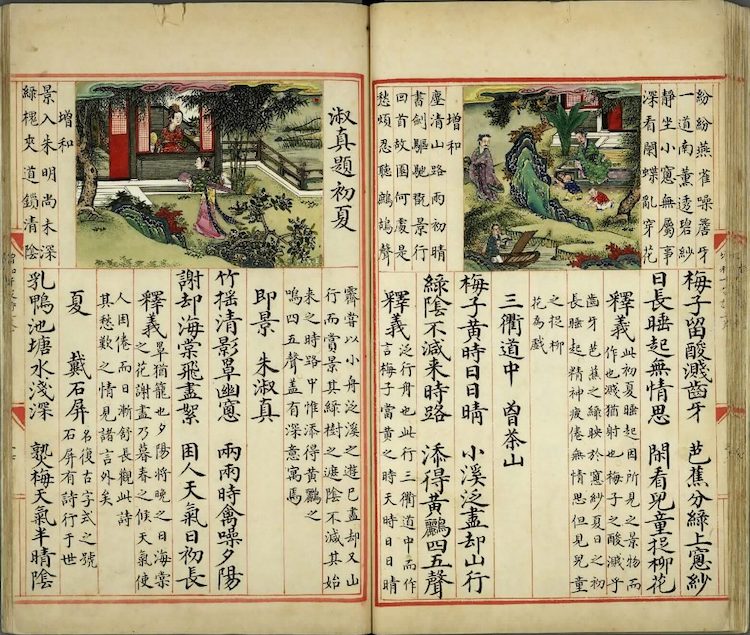 紛紛燕雀噪簷牙
一道南薰透碧紗
靜坐小窻無屬事
深看閙蝶亂穿花
增和
塵清山路兩初晴
書劍驅馳翫景行
回首故園何處是
愁煩忍聽鷓鴣聲
梅子留酸濺齒牙 芭蕉分綠上窻紗
日長睡起無情思 閑看兒童捉柳花
釋義 此初夏睡起因所見之景物而
作也濺猶射也梅子之酸濺乎
齒牙芭蕉之綠映於窻紗夏日之初
長睡起精神疲倦無情思但見兒童
之捉柳
花為戲
三衢道中 曾茶山
梅子黃時日日晴 小溪泛盡却山行
綠陰不減來時路 添得黃鸝四五聲
釋義 泛行舟也此行三衢道中而作
言梅子當黃之時天時日日晴
淑真題初夏
增和
景入朱明尚未深
綠槐夾道鎖清陰
霽嘗以小舟泛溪之遊已盡却又山
行而賞景其綠樹之遮陰不減其始
來之時路中惟添得黃鸝之
鳴四五聲蓋有深意寓焉
即景 朱淑真
竹搖清影罩幽窻 兩兩時禽噪夕陽
謝却海棠飛盡絮 困人天氣日初長
釋義 罩猶籠也夕陽將晚之日海棠
之花謝盡乃暮春之候天氣使
人困倦而日漸舒長觀此詩
其愁歎之情見諸言外矣
夏 戴石屏 名復古字式之號
石屏有詩行于世
乳鴨池塘水淺深 熟梅天氣半晴陰